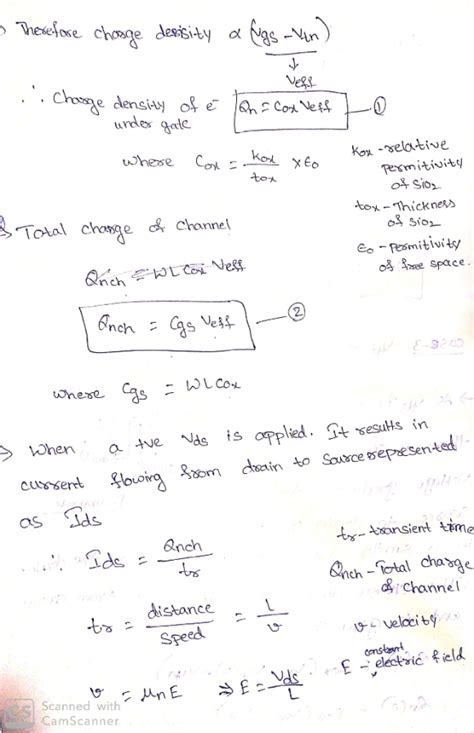 Therefore charge density α (Vgs - Vtn)
↓
Veff
∴ Charge density of e⁻ under gate
Qn = Cox Veff — ①
where Cox = kox/tox × ε0
kox - relative permitivity of SiO2
tox - Thickness of SiO2
ε0 - Permitivity of free space.
Total charge of Channel
Qnch = WL Cox Veff
Qnch = Cgs Veff — ②
where Cgs = WLCox
→ When a +ve Vds is applied. It results in
current flowing from drain to Source represented
as Ids
∴ Ids = Qnch/tr
tr = distance/Speed = L/v
v = μnE ⇒ E = Vds/L
tr - transient time
Qnch - Total charge of Channel
v - velocity
E - constant electric field
CS Scanned with
CamScanner